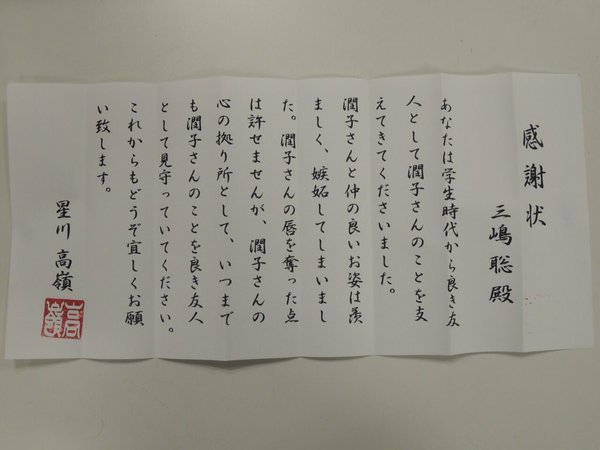 感謝状
三嶋聡殿
あなたは学生時代から良き友
人として潤子さんのことを支
えてきてくださいました。
潤子さんと仲の良いお姿は羨
ましく、嫉妬してしまいまし
た。潤子さんの唇を奪った点
は許せませんが、潤子さんの
心の拠り所として、いつまで
も潤子さんのことを良き友人
として見守っていてください。
これからもどうぞ宜しくお願
い致します。
星川 高嶺
高嶺